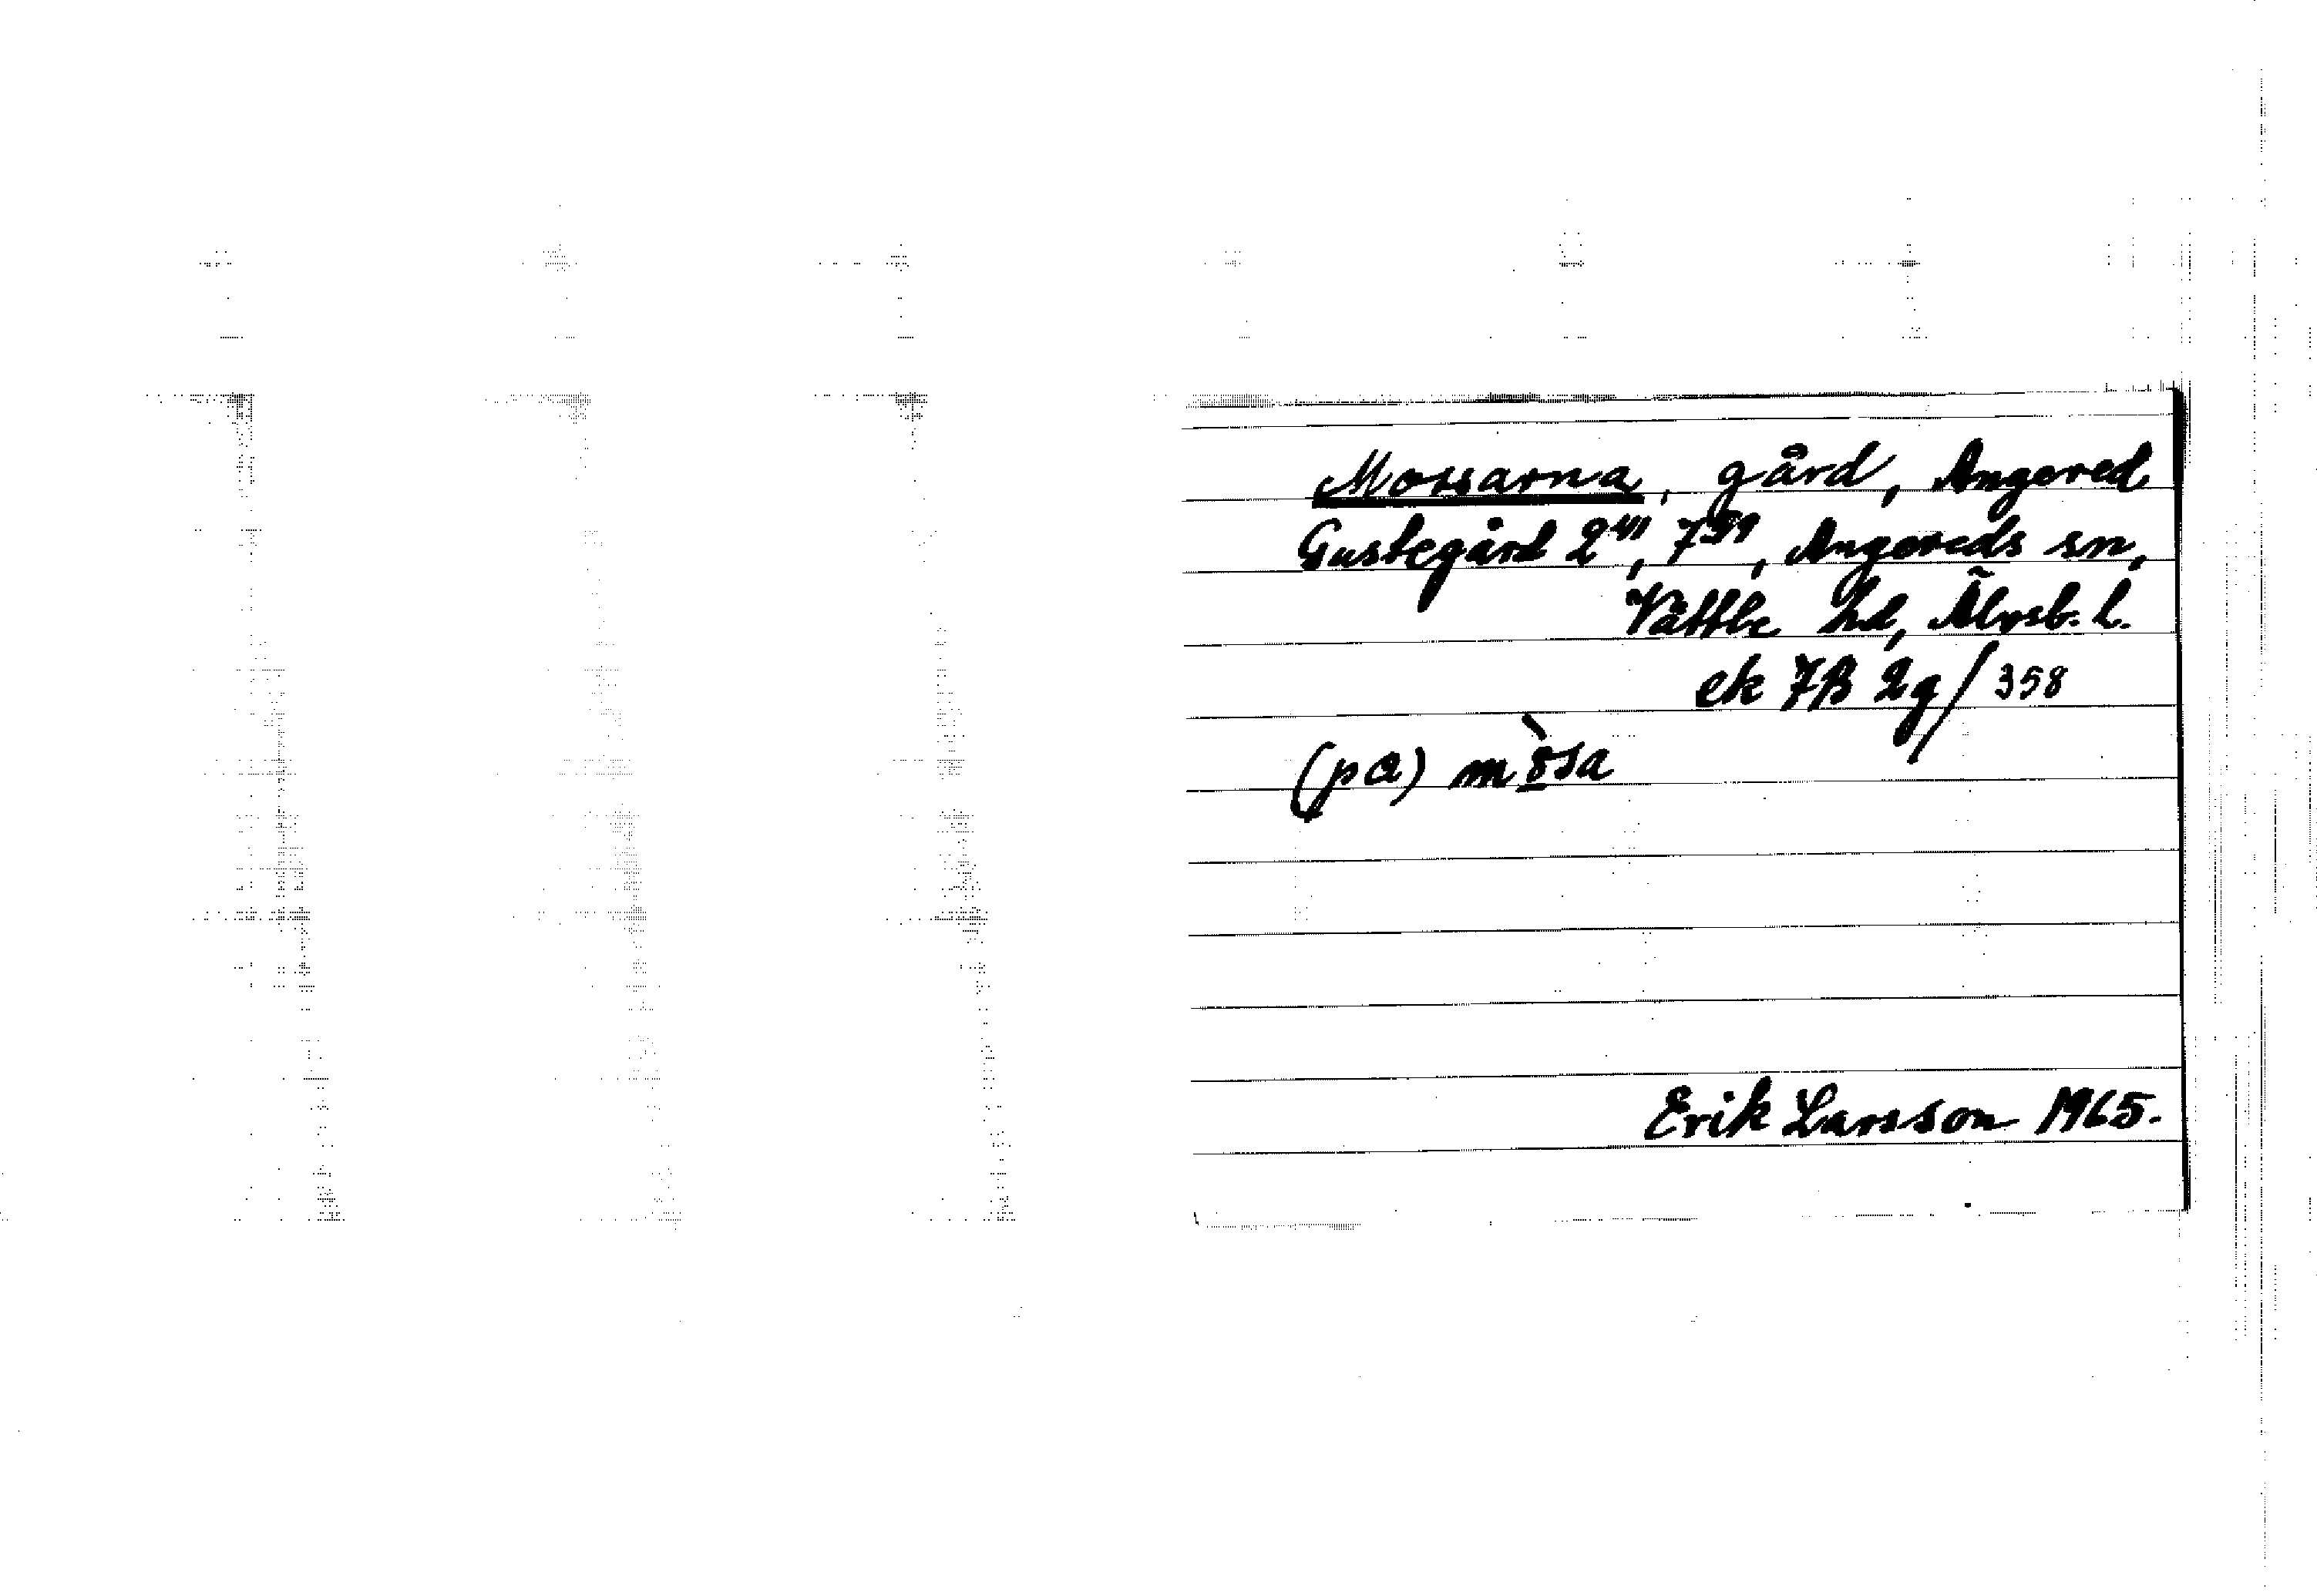 Mossarna, gård, Angered
Gustegård 2⁴¹, 7⁵⁹, Angereds sn,
Vättle hd, Älvsb. l.
ek 7B 2g/358
(pa) mòsa
Erik Larsson 1965.